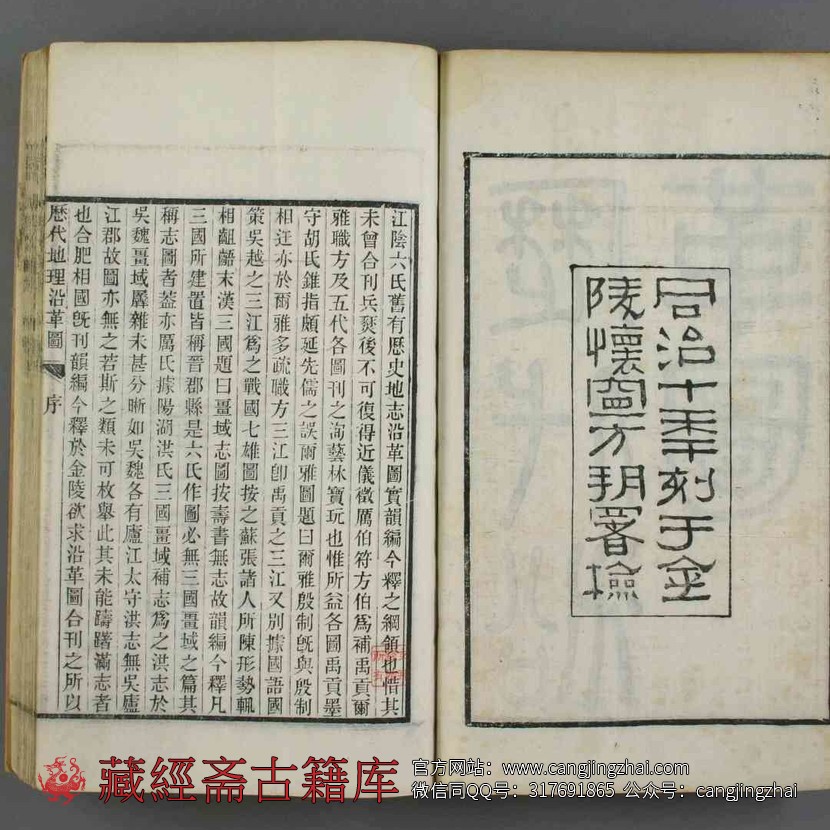 同治十年刻于金
陵懷甯方朔署檢
江陰六氏舊有歷史地志沿革圖實韻編今釋之綱領也惜其
未曾合刊兵燹後不可復得近儀徵厲伯符方伯爲補禹貢爾
雅職方及五代各圖刊之洵藝林寶玩也惟所益各圖禹貢墨
守胡氏錐指頗延先儒之誤爾雅圖題曰爾雅殷制旣與殷制
相迕亦於爾雅多疏職方三江卽禹貢之三江又別據國語國
策吳越之三江爲之戰國七雄圖按之蘇張諸人所陳形勢輒
相齟齬末漢三國題曰畺域志圖按壽書無志故韻編今釋凡
三國所建置皆稱晉郡縣是六氏作圖必無三國畺域之篇其
稱志圖者蓋亦厲氏據陽湖洪氏三國畺域補志爲之洪志於
吳魏畺域羼雜未甚分晰如吳魏各有廬江太守洪志無吳廬
江郡故圖亦無之若斯之類未可枚舉此其未能躊躇滿志者
也合肥相國旣刊韻編今釋於金陵欲求沿革圖合刊之所以
歷代地理沿革圖 序
藏經斋古籍库
官方网站：www.cangjingzhai.com
微信同QQ号：317691865 公众号：cangjingzhai